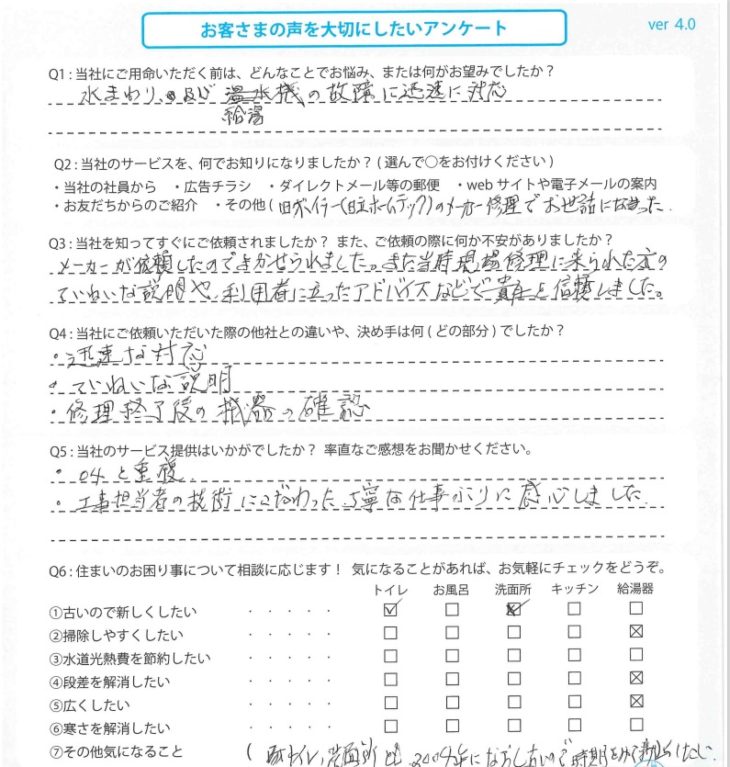 お客さまの声を大切にしたいアンケート
ver 4.0
Q1：当社にご用命いただく前は、どんなことでお悩み、または何がお望みでしたか？
水まわり、及び 温水機の故障に迅速に対応
給湯
Q2：当社のサービスを、何でお知りになりましたか？( 選んで○をお付けください )
・当社の社員から ・広告チラシ ・ダイレクトメール等の郵便 ・web サイトや電子メールの案内
・お友だちからのご紹介 ・その他 ( 旧ボイラー(日立ホームテック)のメーカー修理でお世話になった
Q3：当社を知ってすぐにご依頼されましたか？ また、ご依頼の際に何か不安がありましたか？
メーカーが依頼したのでまかせられました。また当時現場修理に来られた方の
ていねいな説明や、利用者に立ったアドバイスなどで貴社を信頼しました。
Q4：当社にご依頼いただいた際の他社との違いや、決め手は何 ( どの部分 ) でしたか？
・迅速な対応
・ていねいな説明
・修理終了後の機器の確認
Q5：当社のサービス提供はいかがでしたか？ 率直なご感想をお聞かせください。
・Q4と重複
・工事担当者の技術にこだわった丁寧な仕事ぶりに感心しました
Q6：住まいのお困り事について相談に応じます！ 気になることがあれば、お気軽にチェックをどうぞ。
トイレ お風呂 洗面所 キッチン 給湯器
①古いので新しくしたい ・・・・・ ☑ □ ☑ □ □
②掃除しやすくしたい ・・・・・ □ □ □ □ ☒
③水道光熱費を節約したい ・・・・・ □ □ □ □ □
④段差を解消したい ・・・・・ □ □ □ □ ☒
⑤広くしたい ・・・・・ □ □ □ □ ☒
⑥寒さを解消したい ・・・・・ □ □ □ □ □
⑦その他気になること ( トイレ、洗面所 時期をみて